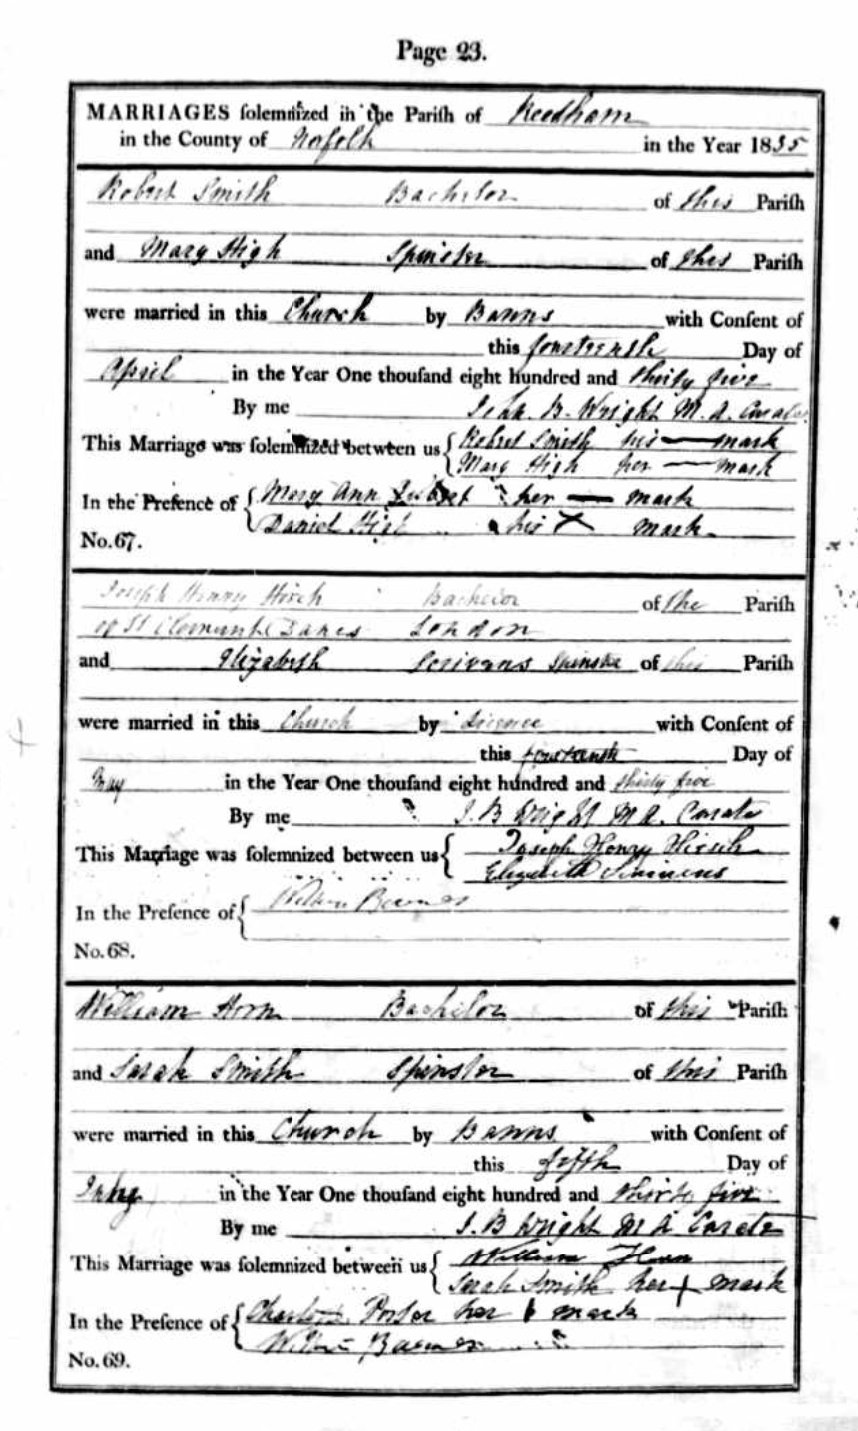 Page 23.
MARRIAGES solemnized in the Parish of Reedham
in the County of Norfolk in the Year 1835
Robert Smith Bachelor of this Parish
and Mary High Spinster of this Parish
were married in this Church by Banns with Consent of
this fourteenth Day of
April in the Year One thousand eight hundred and thirty five
By me John B. Wright M. A. Curate
This Marriage was solemnized between us Robert Smith his mark
Mary High her mark
In the Presence of Mary Ann her mark
Daniel his X mark
No. 67.
Joseph Henry Bachelor of the Parish
of St Clements Danes London
and Elizabeth spinster of this Parish
were married in this Church by Licence with Consent of
this fourteenth Day of
May in the Year One thousand eight hundred and thirty five
By me J. B Wright M A. Curate
This Marriage was solemnized between us Joseph Henry
Elizabeth
In the Presence of William
No. 68.
William Horn Bachelor of this Parish
and Sarah Smith Spinster of this Parish
were married in this Church by Banns with Consent of
this fifth Day of
in the Year One thousand eight hundred and thirty five
By me J. B Wright M A Curate
This Marriage was solemnized between us William Horn
Sarah Smith her + mark
In the Presence of Porter her mark
No. 69.